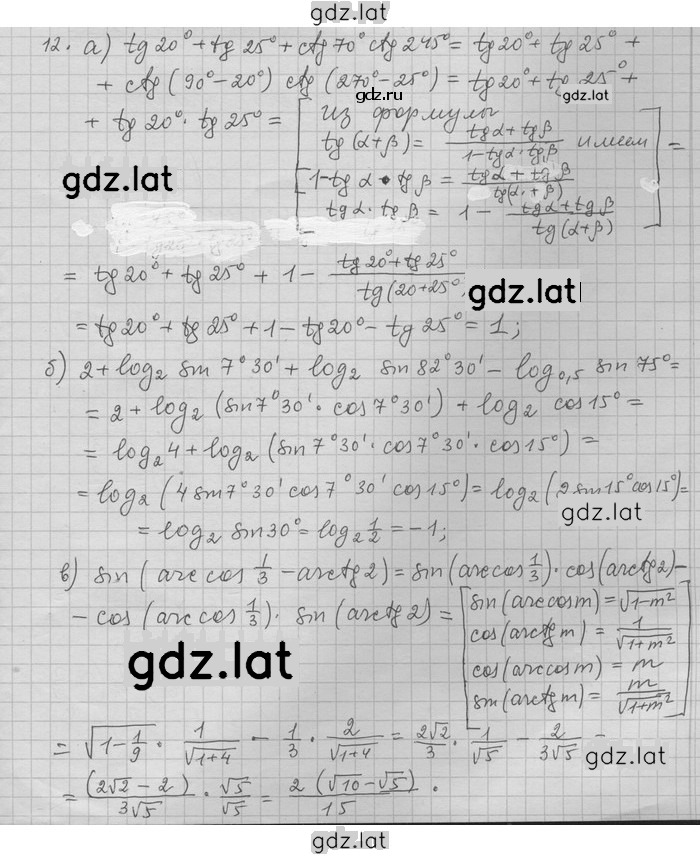 gdz.lat
12. а) tg20° + tg 25° + ctg 70° ctg 245° = tg20° + tg 25° +
+ ctg (90°-20°) ctg (270°-25°) = tg20° + tg 25° +
gdz.ru
+ tg 20° · tg 25° = [ из формулы
tg (α+β) = (tgα + tgβ)/(1-tgα·tgβ) имеем ] =
gdz.lat
1-tg α · tg β = (tgα + tgβ)/(tg(α+β))
tgα · tg β = 1 - (tgα + tgβ)/(tg(α+β))
= tg20° + tg 25° + 1 - (tg20° + tg 25°)/(tg(20+25°
gdz.lat
= tg20° + tg25° + 1 - tg20° - tg 25° = 1;
б) 2 + log₂ sin 7°30' + log₂ sin 82°30' - log₀,₅ sin 75° =
= 2 + log₂ (sin7°30' · cos7°30') + log₂ cos15° =
= log₂4 + log₂ (sin7°30' · cos7°30' · cos15°) =
= log₂ (4sin7°30' cos7°30' cos15°) = log₂(2sin15°cos15°) =
gdz.lat
= log₂ sin30° = log₂ 1/2 = -1;
в) sin (arccos 1/3 - arctg 2) = sin (arccos 1/3) · cos(arctg2) -
- cos (arccos 1/3) · sin (arctg 2) = [ sin (arccos m) = √(1-m²)
cos(arctg m) = 1/√(1+m²)
gdz.lat
cos(arccos m) = m
sin(arctg m) = m/√(1+m²) ]
= √(1-1/9) · 1/√(1+4) - 1/3 · 2/√(1+4) = 2√2/3 · 1/√5 - 2/(3√5) =
gdz.lat
= (2√2-2)/(3√5) · √5/√5 = 2(√10-√5)/15 .
gdz.lat